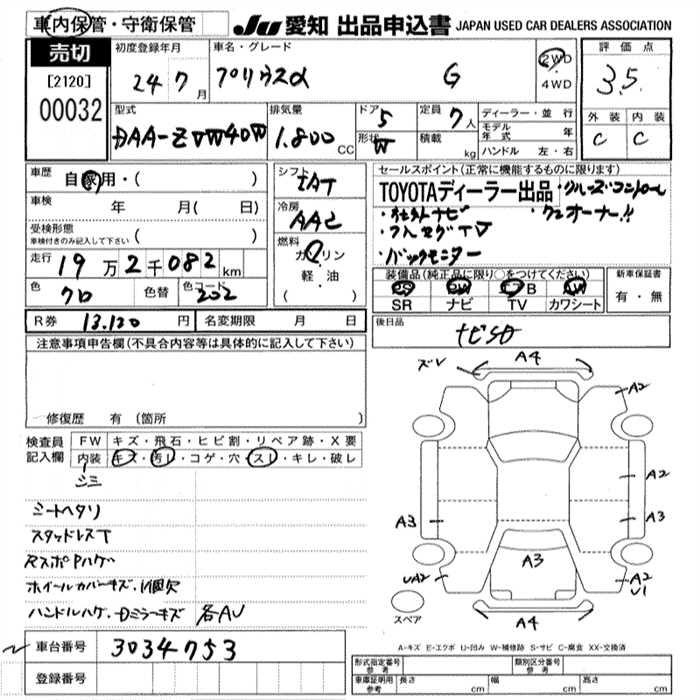 車内保管・守衛保管
JU 愛知 出品申込書 JAPAN USED CAR DEALERS ASSOCIATION
売切
[2120]
00032
初度登録年月
24 7月
車名・グレード
プリウスα G
2WD
・
4WD
評価点
3.5
外装 内装
C C
型式
DAA-ZVW40W
排気量
1.800 CC
ドア 5
形状 W
定員 7人
積載 kg
ディーラー・並行
モデル年式 年
ハンドル 左・右
車歴 自家用・( )
車検 年 月( 日)
受検形態
車検付きのみ記入して下さい ( )
走行 19万2千082km
色 クロ 色替 色コード 202
シフト
IAT
冷房
AAC
燃料
ガソリン
・
軽・油
( )
セールスポイント(正常に機能するものに限ります)
TOYOTAディーラー出品 ・クルーズコントロール
・社外ナビ ・ワンオーナー!!
・フルセグTV
・バックモニター
装備品(純正品に限り○をつけてください)
PS PW エアB AW
SR ナビ TV カワシート
新車保証書
有・無
R券 13.120 円 名変期限 月 日
後日品
ナビSD
注意事項申告欄(不具合内容等は具体的に記入して下さい)
修復歴 有 (箇所 )
検査員記入欄
FW キズ・飛石・ヒビ割・リペア跡・X要
内装 キズ・汚レ・コゲ・穴・スレ・キレ・破レ
シミ
シートヘタリ
スタッドレスT
RスポPハゲ
ホイールカバーキズ・1個欠
ハンドルハゲ・Dミラーキズ 各AU
ズレ A4
A2
A2
A3 A3
A3
UA2 A2
U1
A4
スペア
A-キズ E-エクボ U-凹み W-補修跡 S-サビ C-腐食 XX-交換済
車台番号 3034753
登録番号
形式指定番号 参考
類別区分番号 参考
車庫証明用 参考 長さ cm 幅 cm 高さ cm